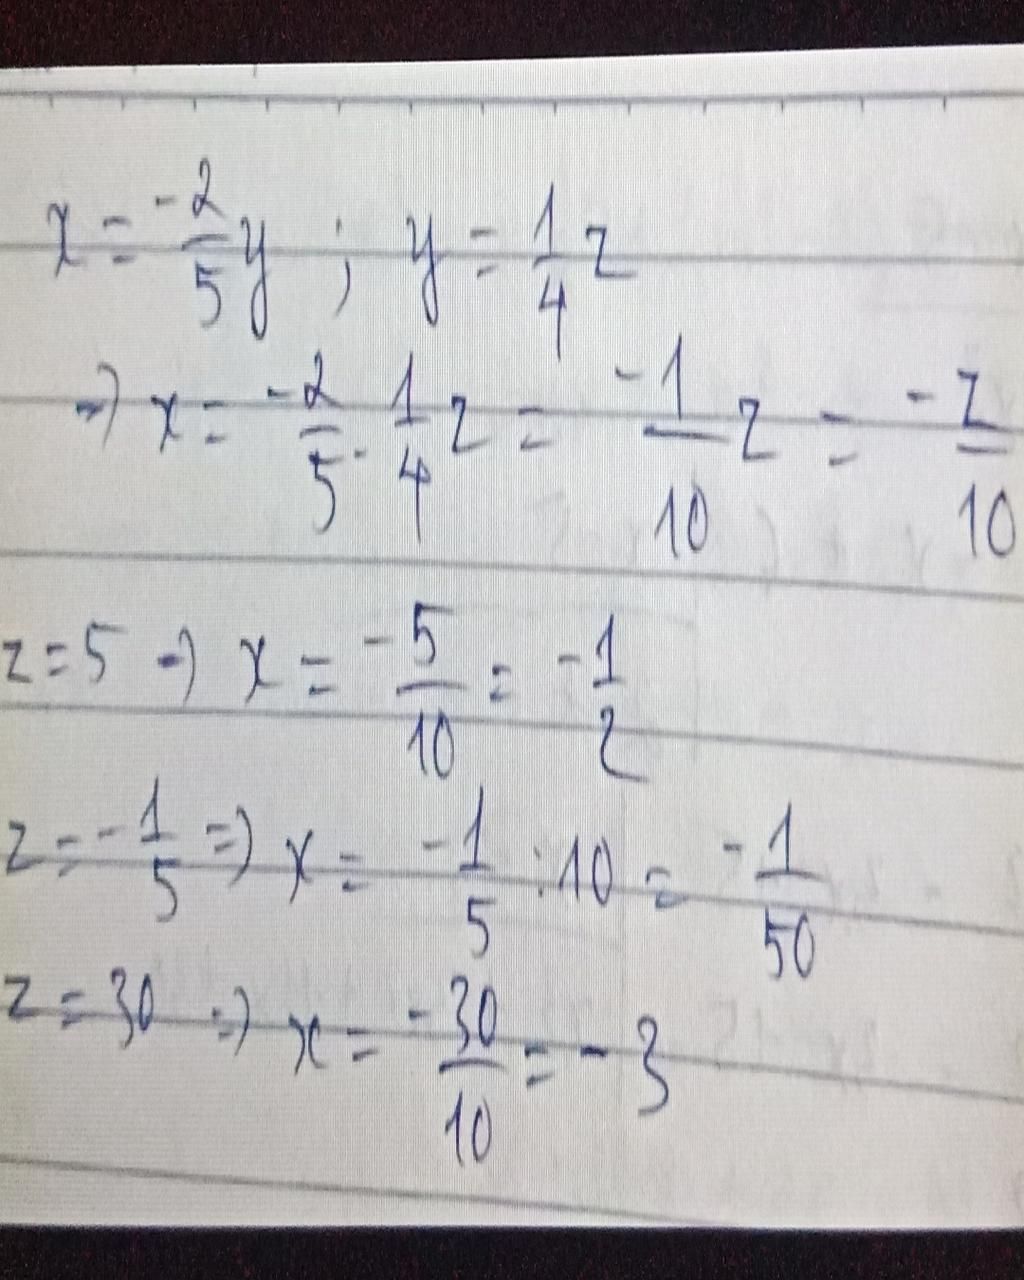 x = -2/5 y ; y = 1/4 z
=> x = -2/5 . 1/4 z = -1/10 z = -z/10
z = 5 => x = -5/10 = -1/2
z = -1/5 => x = -1/5 : 10 = -1/50
z = 30 => x = -30/10 = -3